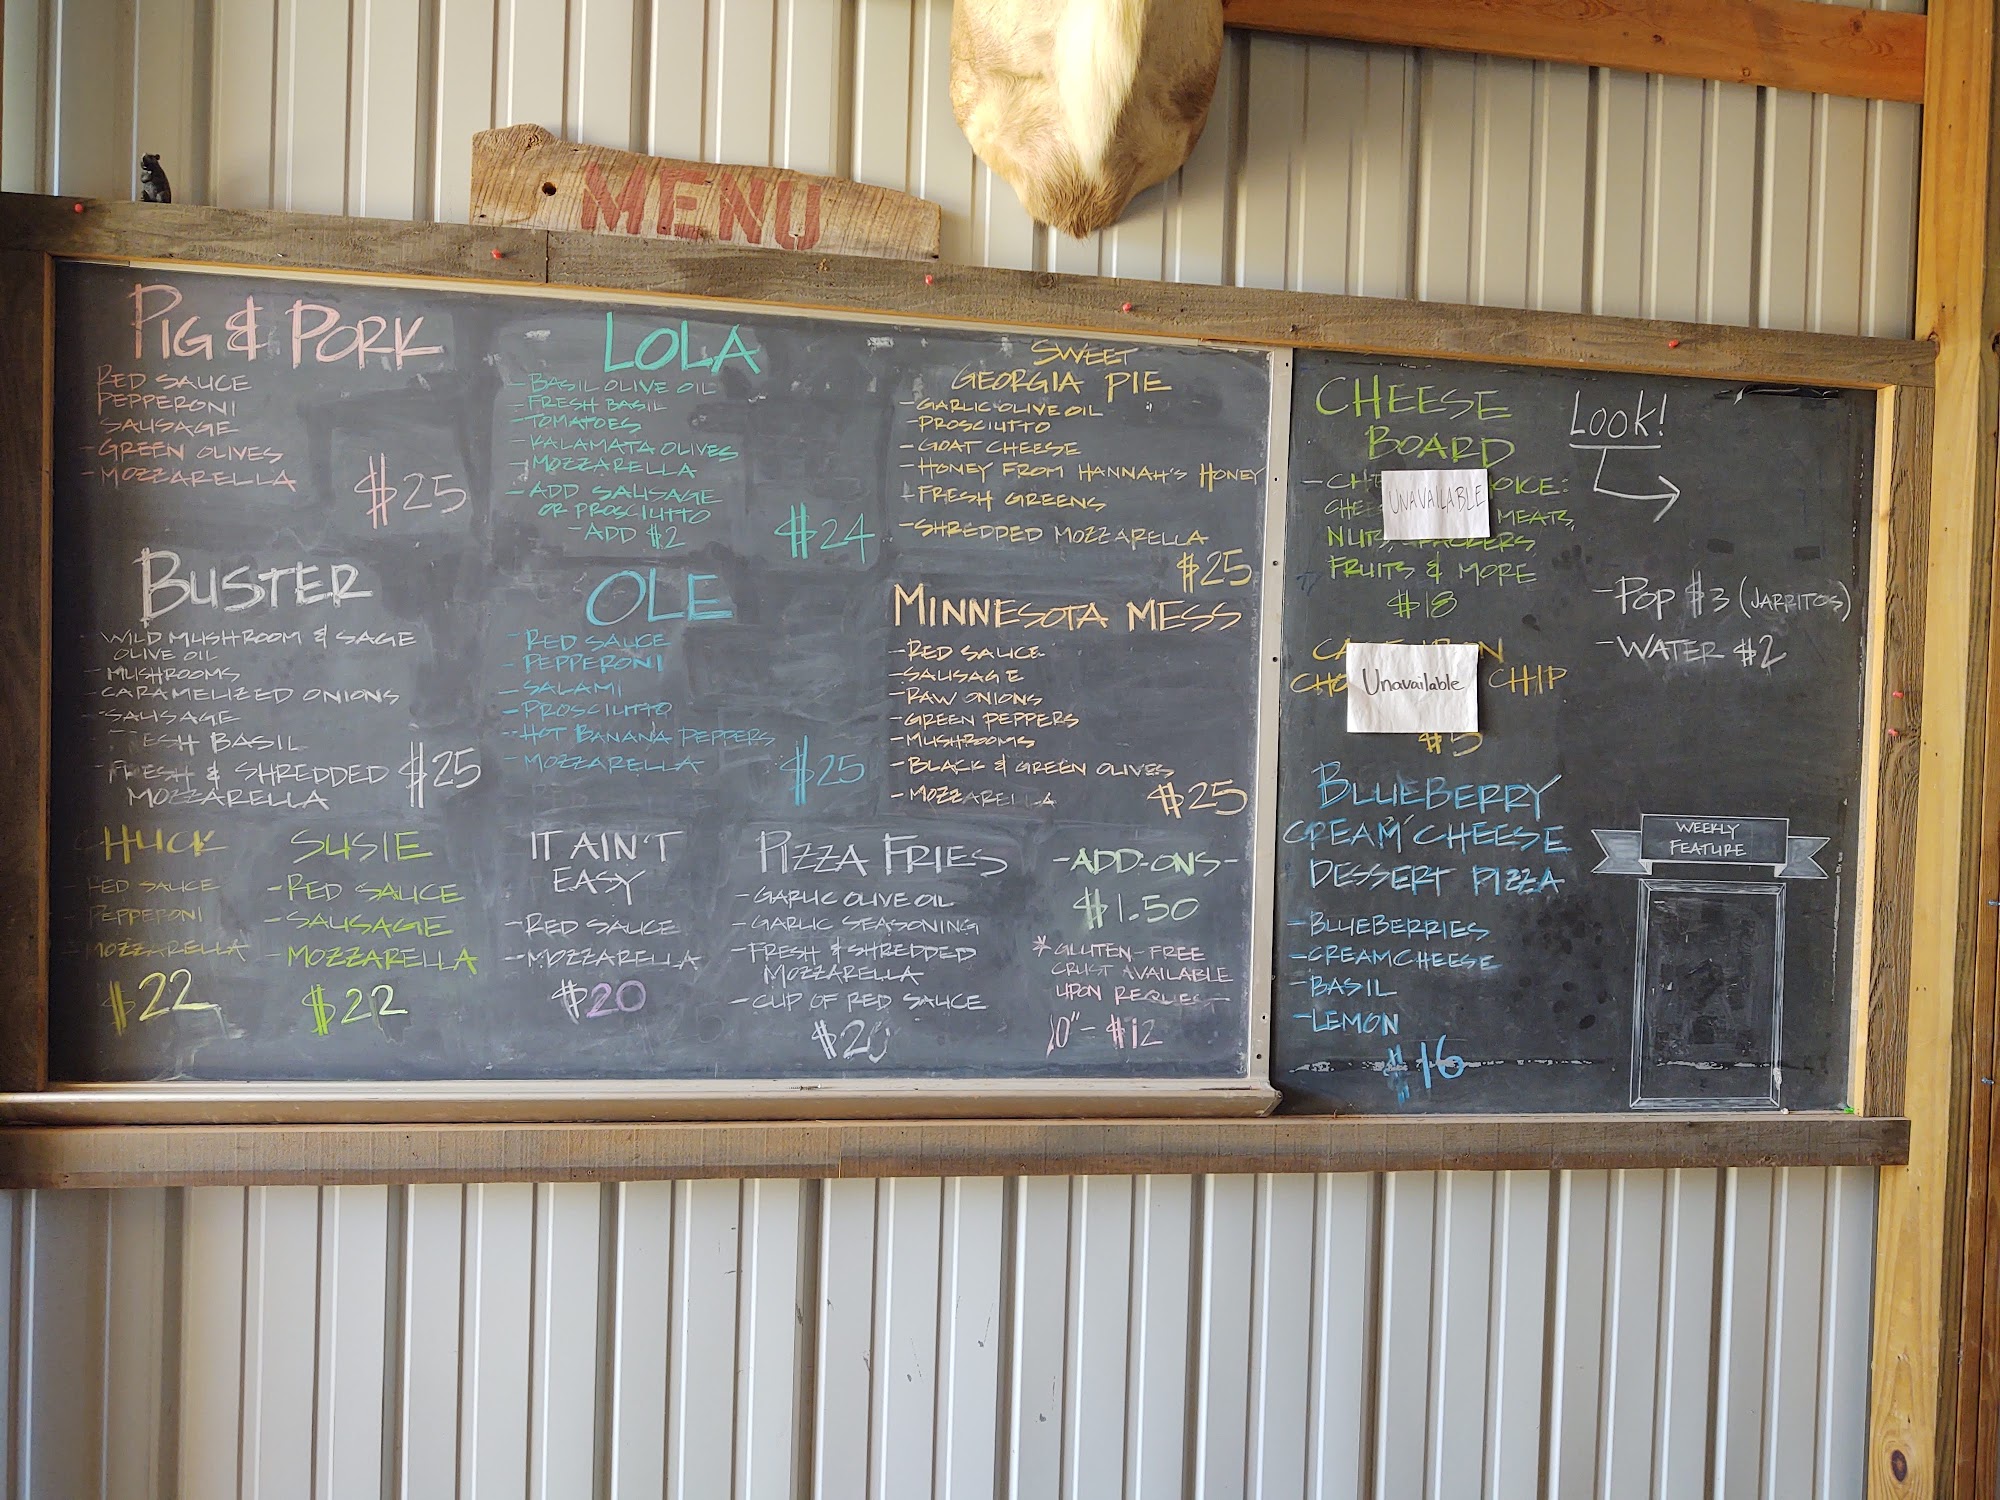 MENU
PIG & PORK
RED SAUCE
PEPPERONI
SAUSAGE
-GREEN OLIVES
-MOZZARELLA
$25
LOLA
-BASIL OLIVE OIL
-FRESH BASIL
-TOMATOES
-KALAMATA OLIVES
-MOZZARELLA
-ADD SAUSAGE
OR PROSCIUTTO
-ADD $2
$24
SWEET
GEORGIA PIE
-GARLIC OLIVE OIL
-PROSCIUTTO
-GOAT CHEESE
-HONEY FROM HANNAH'S HONEY
-FRESH GREENS
-SHREDDED MOZZARELLA
$25
BUSTER
-WILD MUSHROOM & SAGE
OLIVE OIL
-MUSHROOMS
-CARAMELIZED ONIONS
-SAUSAGE
-FRESH BASIL
-FRESH & SHREDDED
MOZZARELLA
$25
OLE
-RED SAUCE
-PEPPERONI
-SALAMI
-PROSCIUTTO
-HOT BANANA PEPPERS
-MOZZARELLA
$25
MINNESOTA MESS
-RED SAUCE
-SAUSAGE
-RAW ONIONS
-GREEN PEPPERS
-MUSHROOMS
-BLACK & GREEN OLIVES
-MOZZARELLA
$25
CHUCK
-RED SAUCE
-PEPPERONI
-MOZZARELLA
$22
SUSIE
-RED SAUCE
-SAUSAGE
-MOZZARELLA
$22
IT AIN'T
EASY
-RED SAUCE
-MOZZARELLA
$20
PIZZA FRIES
-GARLIC OLIVE OIL
-GARLIC SEASONING
-FRESH & SHREDDED
MOZZARELLA
-CUP OF RED SAUCE
$20
-ADD-ONS-
$1.50
*GLUTEN-FREE
CRUST AVAILABLE
UPON REQUEST-
10"- $12
CHEESE
BOARD
UNAVAILABLE
MEATS,
NUTS, CRACKERS
FRUITS & MORE
$18
Unavailable
CHIP
$5
BLUEBERRY
CREAM CHEESE
DESSERT PIZZA
-BLUEBERRIES
-CREAMCHEESE
-BASIL
-LEMON
$16
LOOK!
-POP $3 (JARRITOS)
-WATER $2
WEEKLY
FEATURE